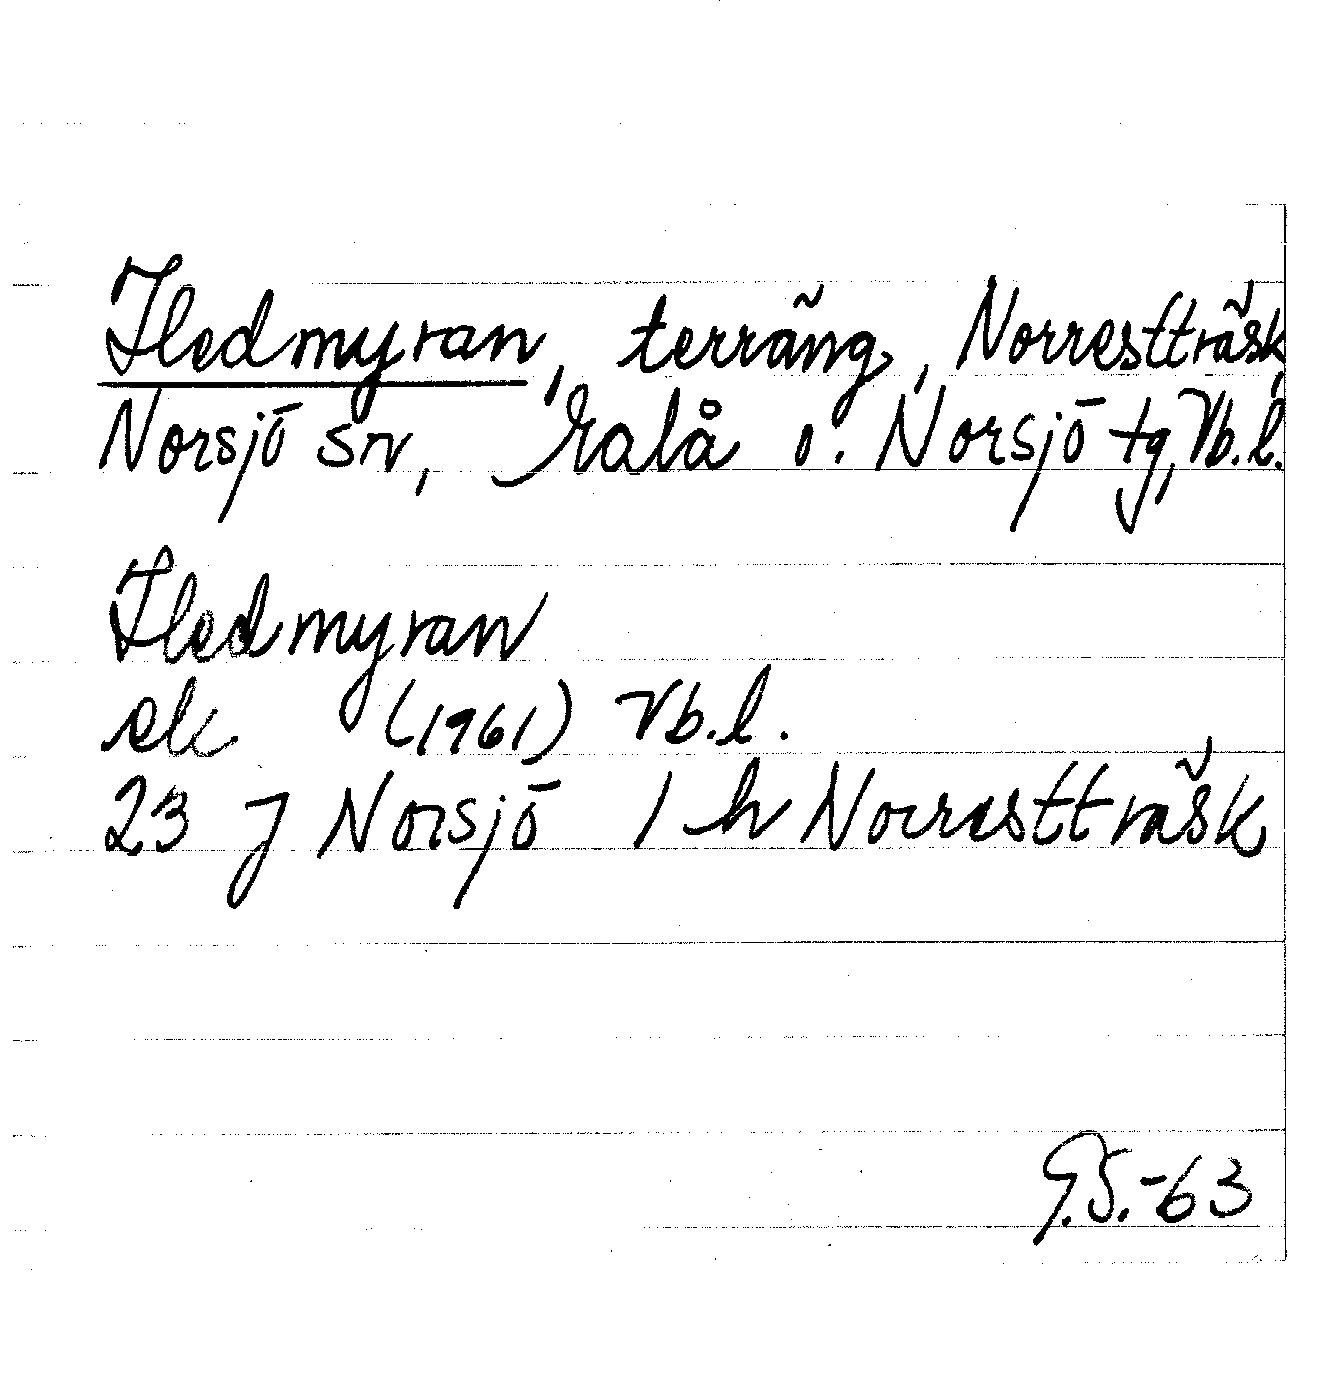 Iledmyran, terräng, Norrestträsk,
Norsjö sn, Malå o. Norsjö tg, Vb.l.
Iledmyran
ek (1961) Vb.l.
23 J Norsjö 1 h Norrestträsk
G.S.-63